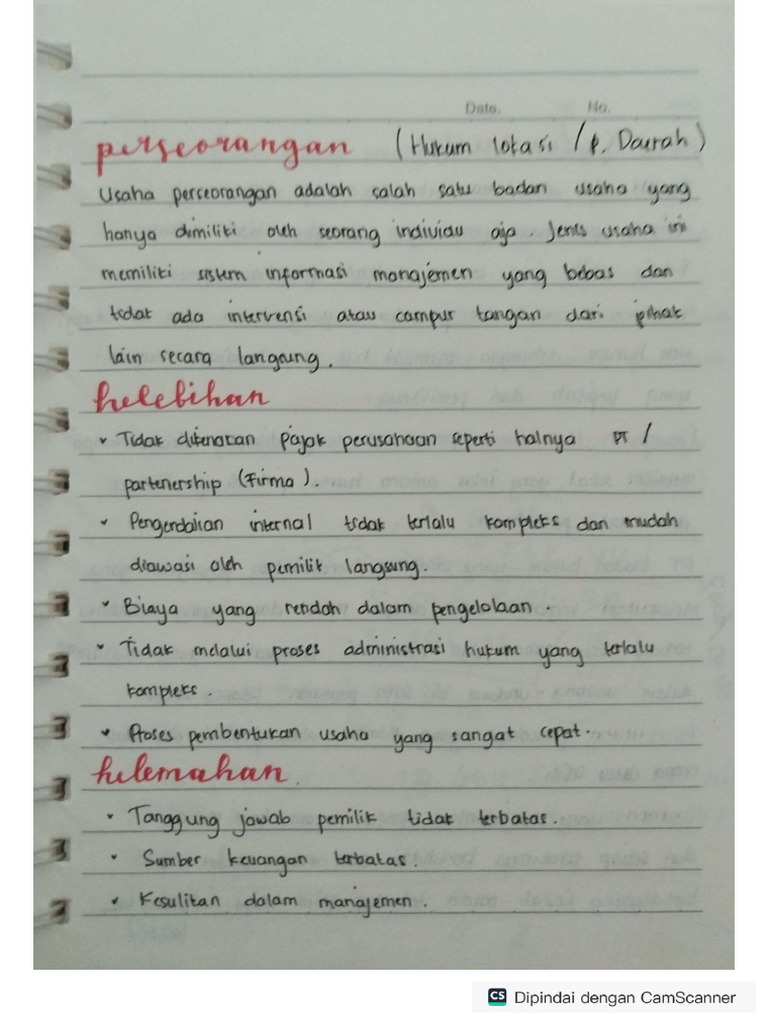 Date. No.
perseorangan (Hukum lokasi / p. Daerah)
Usaha perseorangan adalah salah satu badan usaha yang
hanya dimiliki oleh seorang individu aja. Jenis usaha ini
memiliki sistem informasi manajemen yang bebas dan
tidak ada intervensi atau campur tangan dari pihak
lain secara langsung.
kelebihan
• Tidak dikenakan pajak perusahaan seperti halnya PT /
partenership (Firma).
• Pengendalian internal tidak terlalu kompleks dan mudah
diawasi oleh pemilik langsung.
• Biaya yang rendah dalam pengelolaan.
• Tidak melalui proses administrasi hukum yang terlalu
kompleks.
• Proses pembentukan usaha yang sangat cepat.
kelemahan.
• Tanggung jawab pemilik tidak terbatas.
• Sumber keuangan terbatas.
• Kesulitan dalam manajemen.
CS Dipindai dengan CamScanner